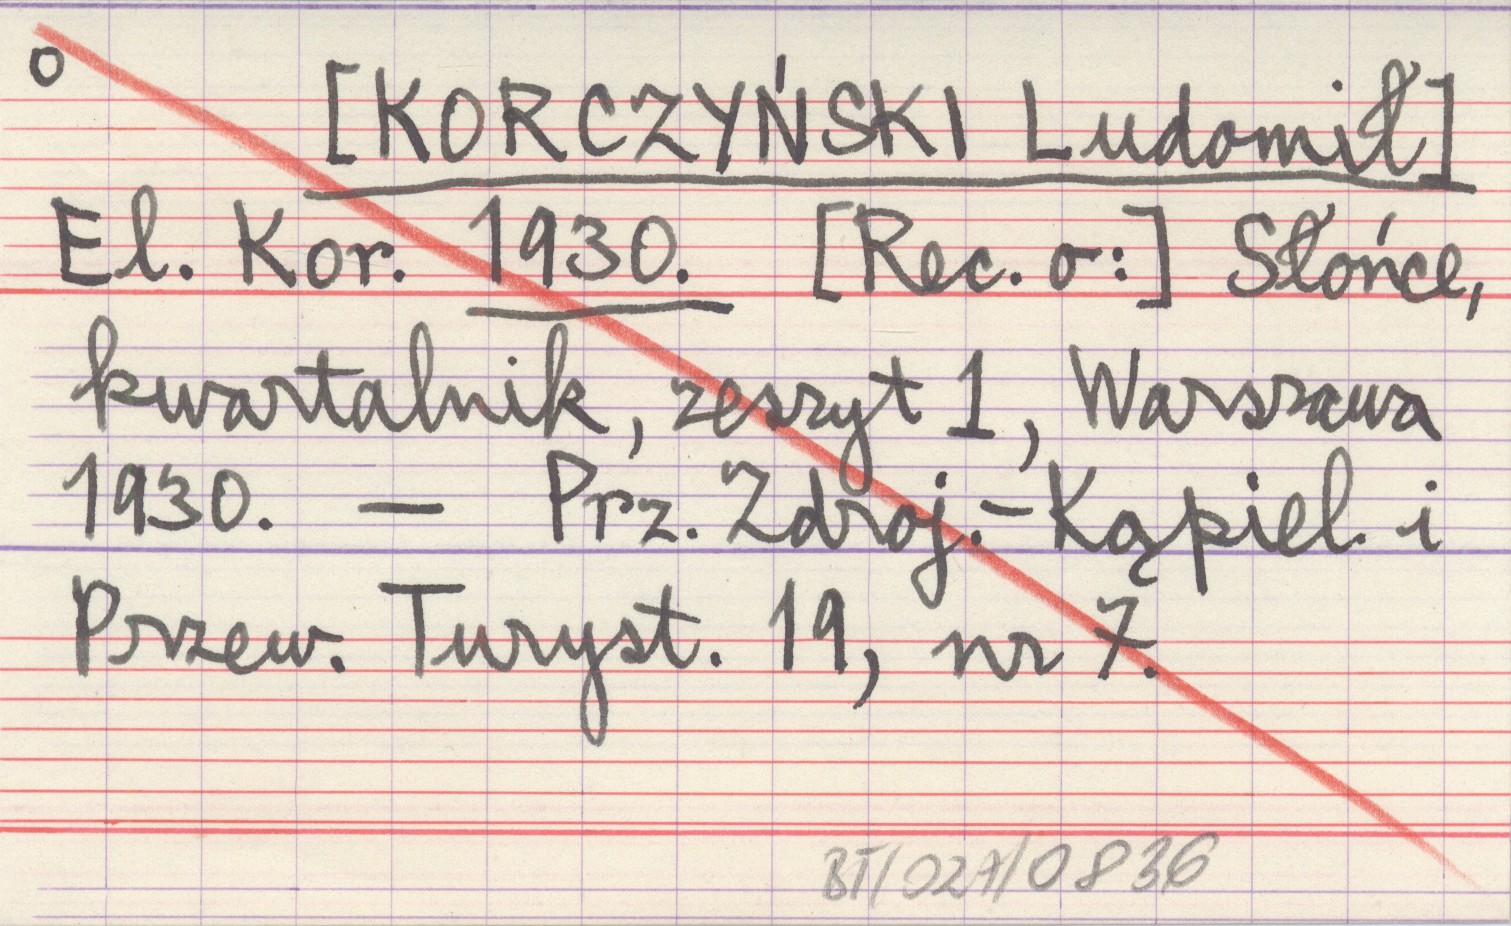 o
[KORCZYŃSKI Ludomił]
El. Kor. 1930. [Rec. o:] Słońce,
kwartalnik, zeszyt 1, Warszawa
1930. — Prz. Zdroj.-Kąpiel. i
Przew. Turyst. 19, nr 7.
BT/027/0836